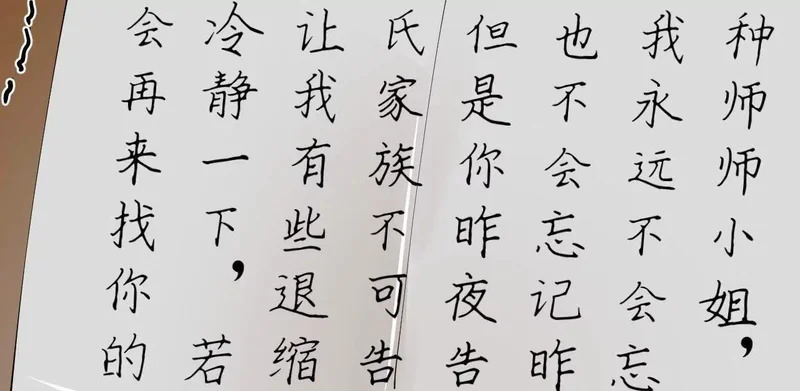 种师师小姐，
我永远不会忘
也不会忘记昨
但是你昨夜告
氏家族不可告
让我有些退缩
冷静一下，若
会再来找你的